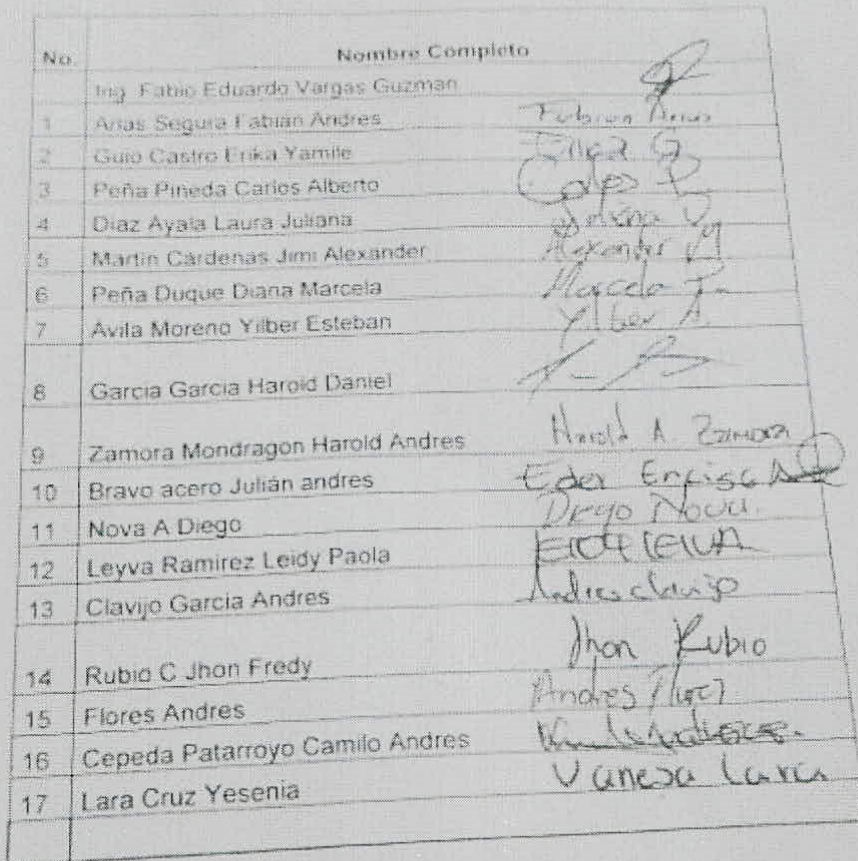 No. Nombre Completo
Ing. Fabio Eduardo Vargas Guzman
1 Arias Segura Fabian Andres Fabian Arias
2 Guio Castro Erika Yamile Erika G
3 Peña Pineda Carlos Alberto Carlos P
4 Diaz Ayala Laura Juliana
5 Martin Cárdenas Jimi Alexander Alexander M
6 Peña Duque Diana Marcela Marcela P.
7 Avila Moreno Yilber Esteban Yilber A.
8 Garcia Garcia Harold Daniel
9 Zamora Mondragon Harold Andres Harold A. Zamora
10 Bravo acero Julián andres Eder Enciso
11 Nova A Diego Diego Nova.
12 Leyva Ramirez Leidy Paola
13 Clavijo Garcia Andres Andres clavijo
14 Rubio C Jhon Fredy Jhon Rubio
15 Flores Andres Andres
16 Cepeda Patarroyo Camilo Andres
17 Lara Cruz Yesenia Vanesa Lara